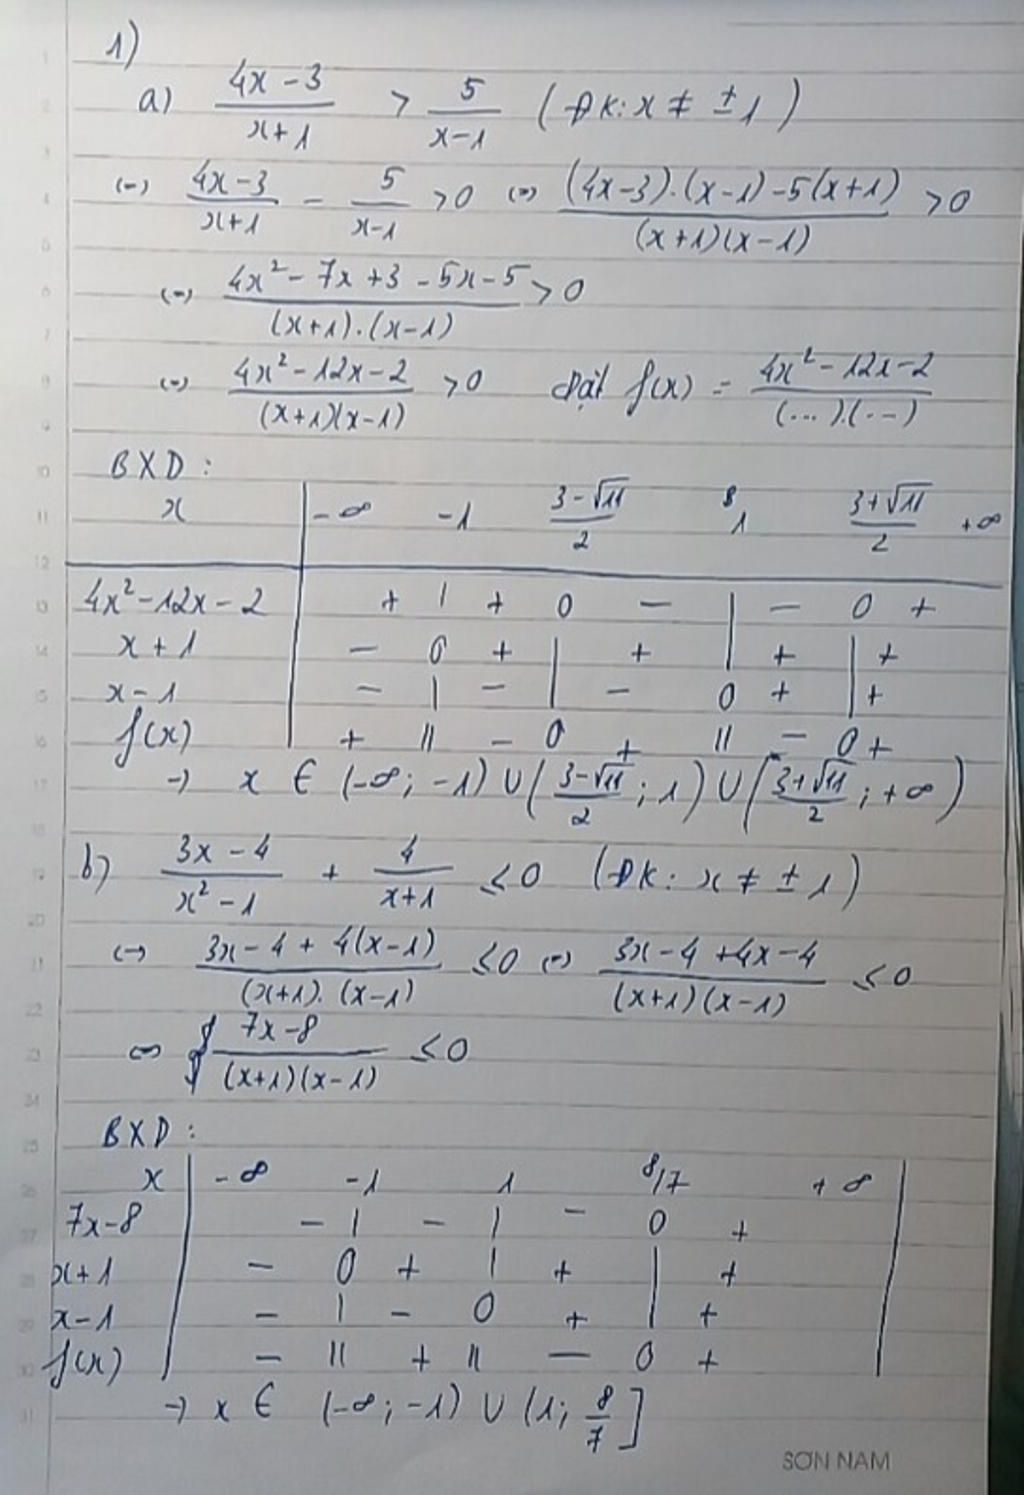 1)
a) (4x - 3)/(x + 1) > 5/(x - 1) (ĐK: x ≠ ± 1)
(=) (4x - 3)/(x + 1) - 5/(x - 1) > 0 (=) ((4x - 3).(x - 1) - 5(x + 1))/((x + 1)(x - 1)) > 0
(=) (4x² - 7x + 3 - 5x - 5)/((x + 1).(x - 1)) > 0
(=) (4x² - 12x - 2)/((x + 1)(x - 1)) > 0 Đặt f(x) = (4x² - 12x - 2)/((...).(...))
BXD :
x | -∞ -1 (3 - √11)/2 1 (3 + √11)/2 +∞
4x² - 12x - 2 + | + 0 - | - 0 +
x + 1 - 0 + | + | + | +
x - 1 - | - | - 0 + | +
f(x) + || - 0 + || - 0 +
→ x ∈ (-∞; -1) ∪ ((3 - √11)/2; 1) ∪ ((3 + √11)/2; +∞)
b) (3x - 4)/(x² - 1) + 4/(x + 1) ≤ 0 (ĐK: x ≠ ± 1)
(=) (3x - 4 + 4(x - 1))/((x + 1).(x - 1)) ≤ 0 (=) (3x - 4 + 4x - 4)/((x + 1)(x - 1)) ≤ 0
(=) (7x - 8)/((x + 1)(x - 1)) ≤ 0
BXD :
x | -∞ -1 1 8/7 +∞
7x - 8 - | - | - 0 +
x + 1 - 0 + | + | +
x - 1 - | - 0 + | +
f(x) - || + || - 0 +
→ x ∈ (-∞; -1) ∪ (1; 8/7]
SƠN NAM